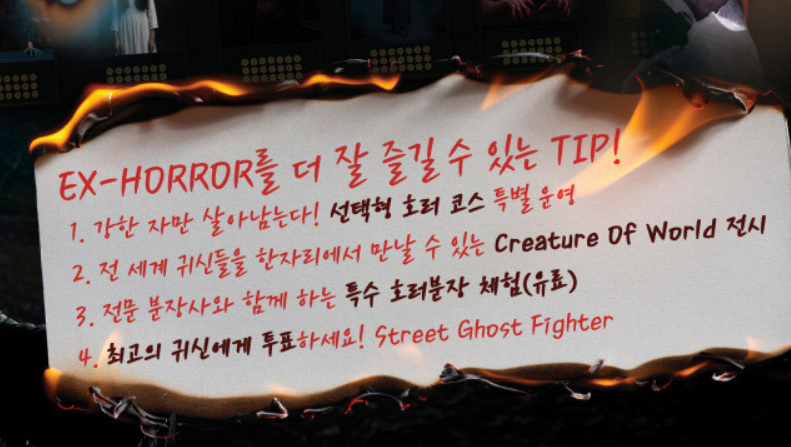 EX-HORROR를 더 잘 즐길 수 있는 TIP!
1. 강한 자만 살아남는다! 선택형 호러 코스 특별 운영
2. 전 세계 귀신들을 한자리에서 만날 수 있는 Creature Of World 전시
3. 전문 분장사와 함께 하는 특수 호러분장 체험(유료)
4. 최고의 귀신에게 투표하세요! Street Ghost Fighter